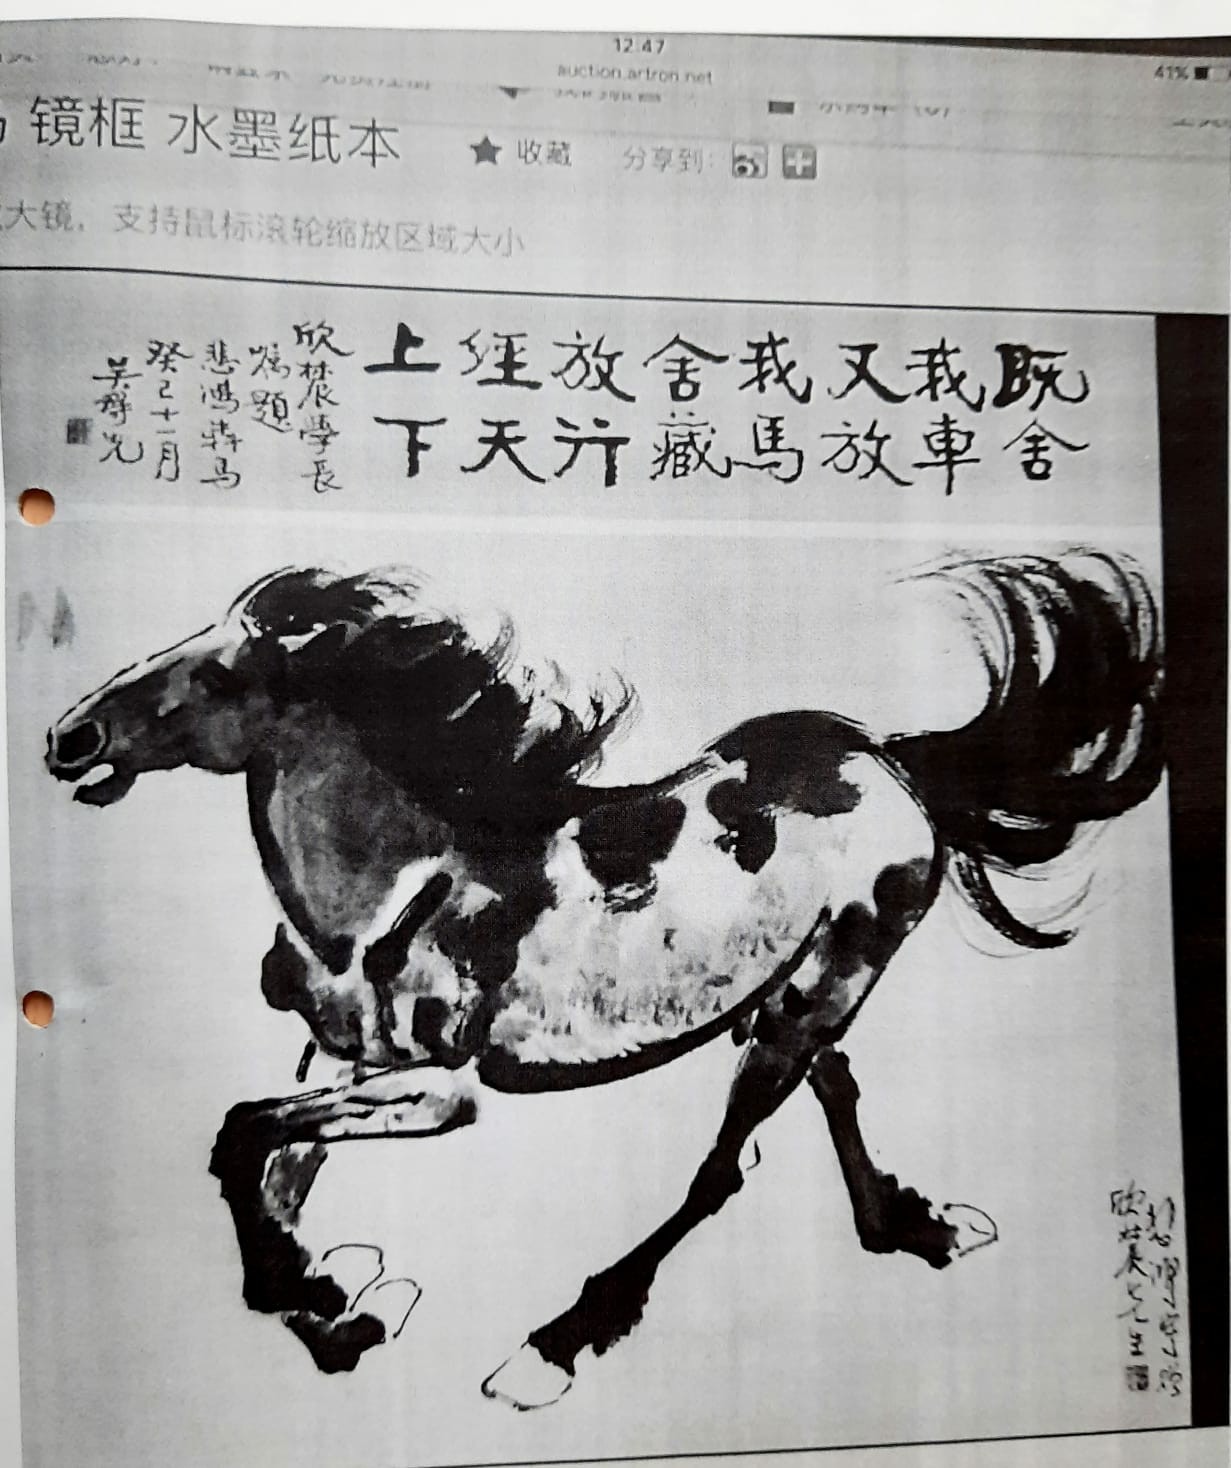 12:47
auction.artron.net
41%
镜框 水墨纸本
收藏
分享到:
大镜，支持鼠标滚轮缩放区域大小
既舍
我車
又放
我馬
舍藏
放行
經天
上下
欣農學長
嘱題
悲鴻犇马
癸巳十一月
悲鴻
欣農先生